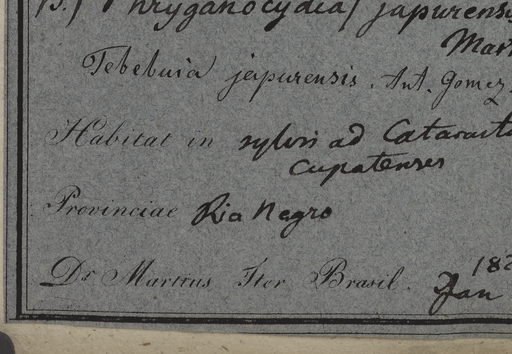 Phryganocydia japurensis
Mart
Tebebuia japurensis. Ant. Gomez.
Habitat in sylvis ad Cataracta
Cupatenses
Provinciae Rio Negro
Dr Martius Iter Brasil.
182
Jan